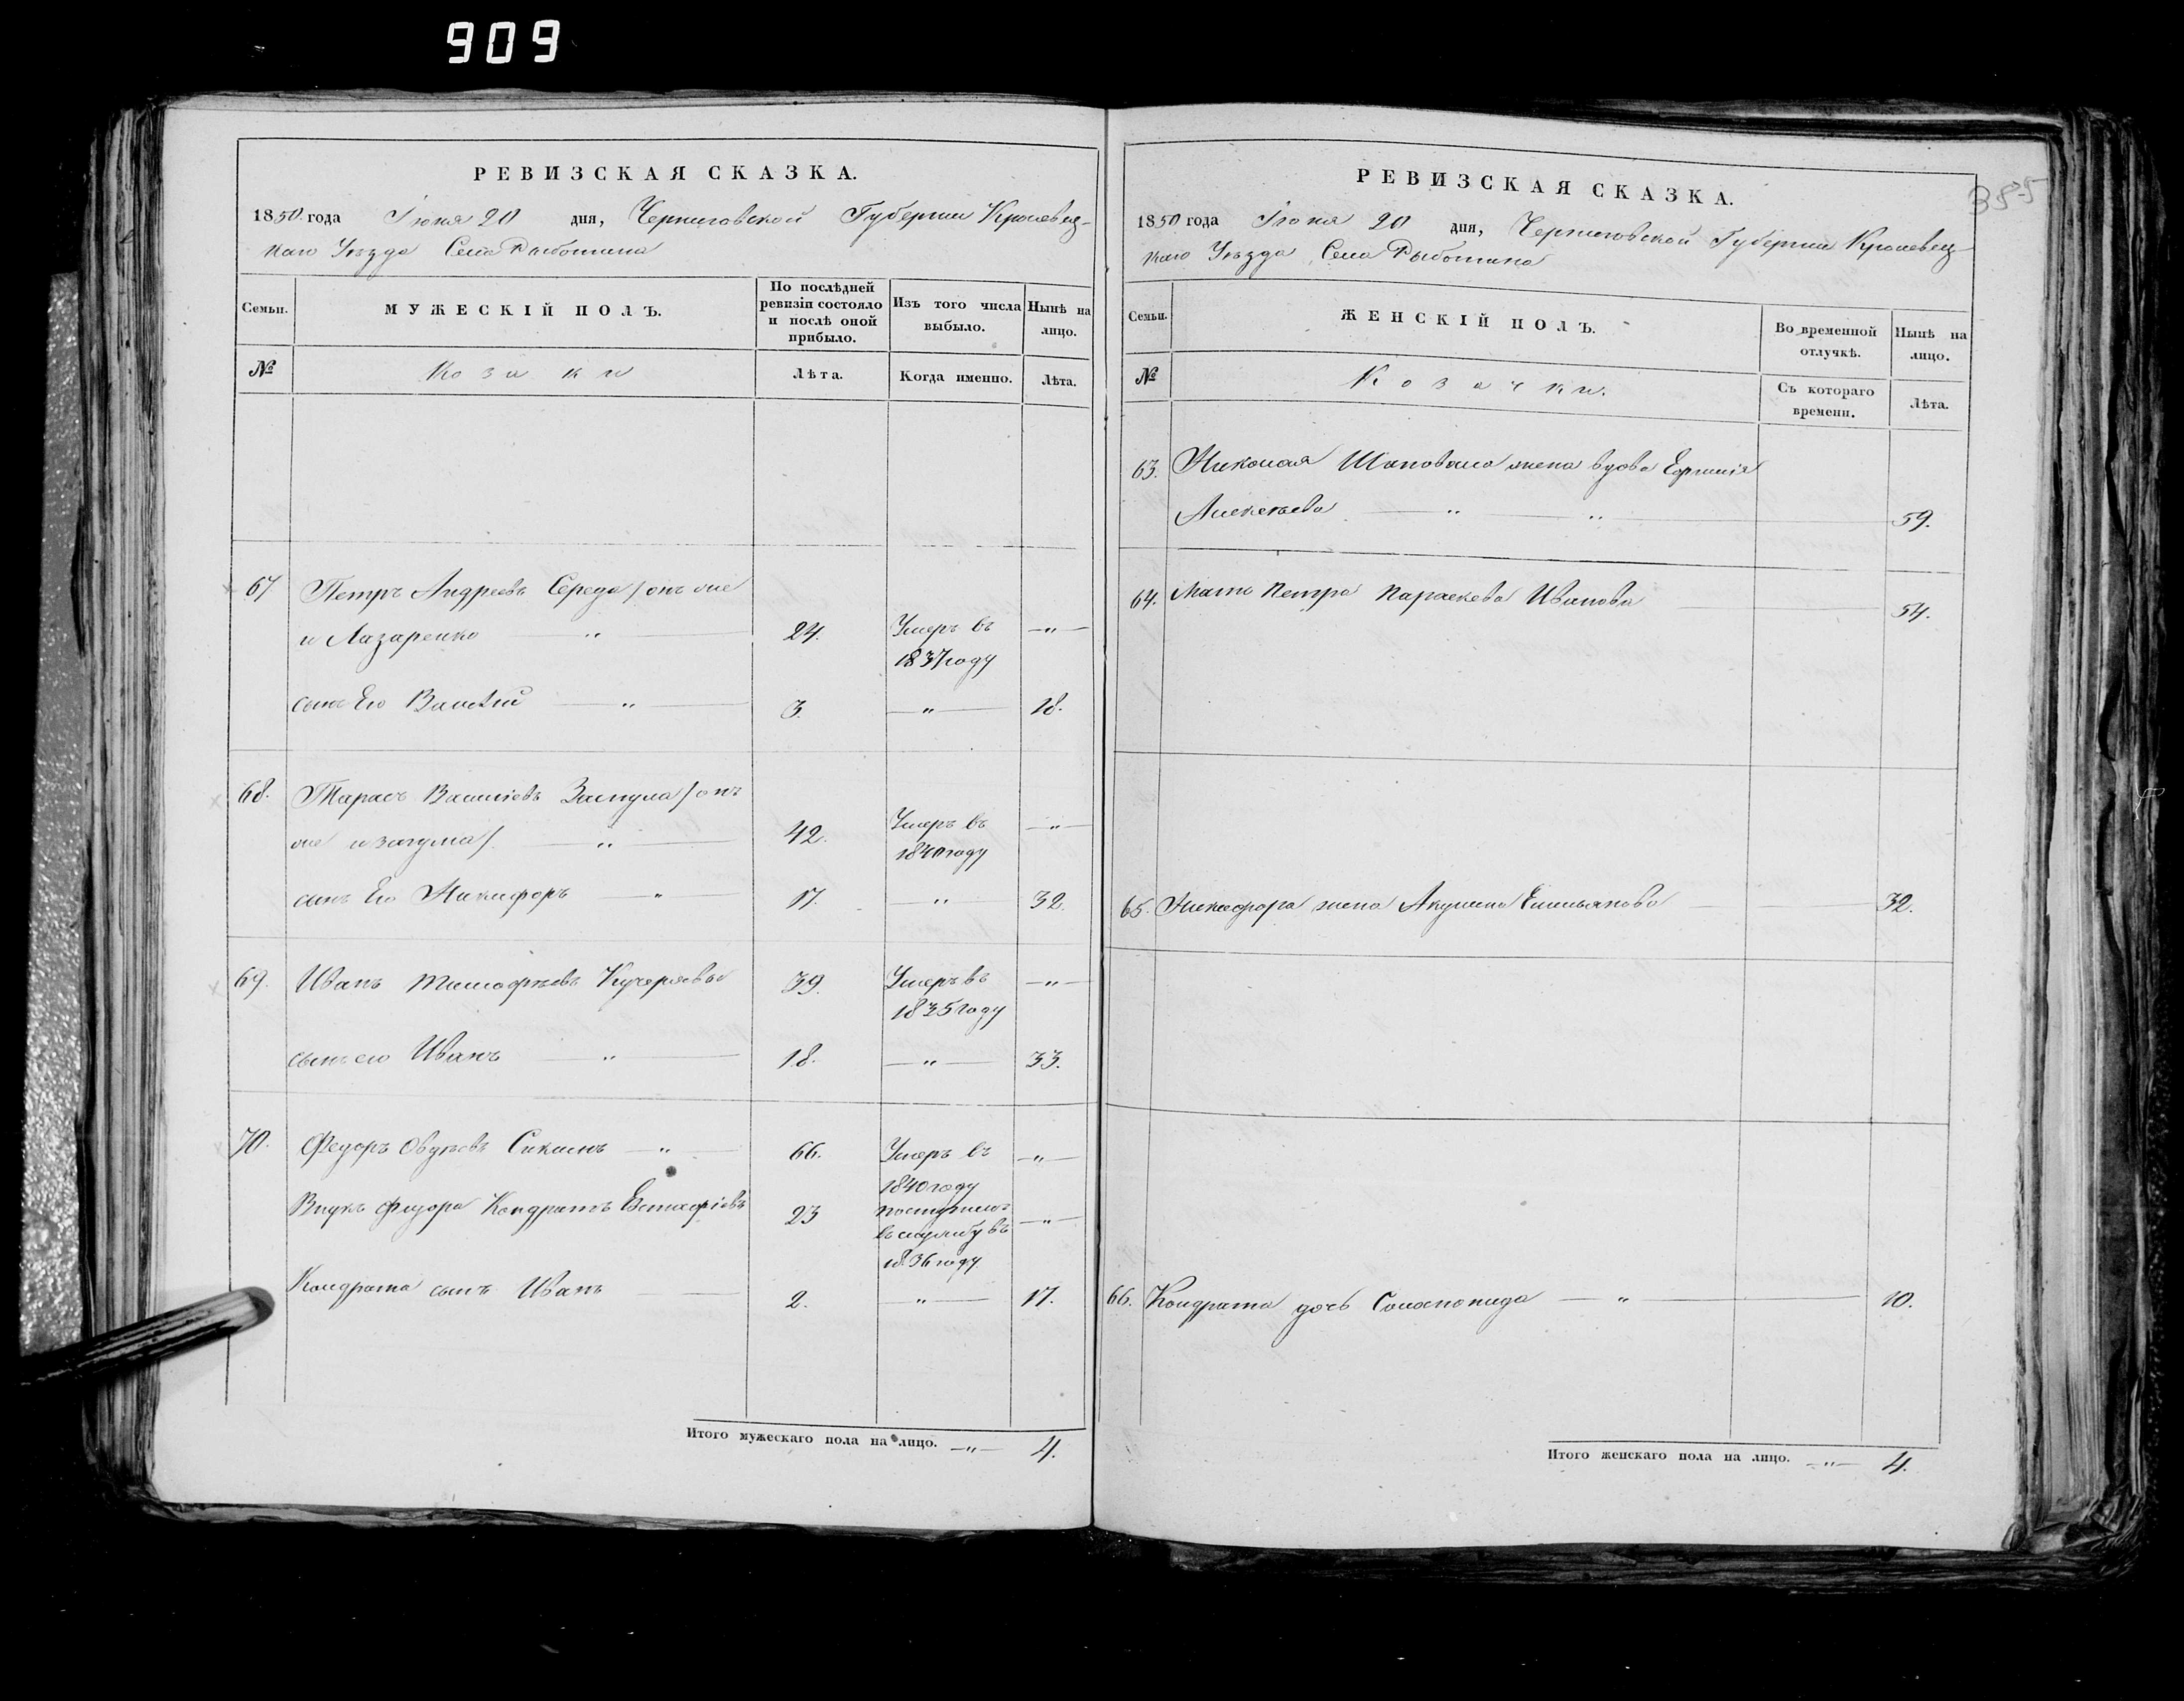 909
РЕВИЗСКАЯ СКАЗКА.
1850 года Іюня 20 дня, Черниговской Губерніи Кролевец-
каго Уѣзда Села Рыботина
Семьи.
МУЖЕСКІЙ ПОЛЪ.
По послѣдней
ревизіи состояло
и послѣ оной
прибыло.
Изъ того числа
выбыло.
Нынѣ на
лицо.
№
Козаки
Лѣта.
Когда именно.
Лѣта.
67 Петръ Андреевъ Середа / онъ же
и Лазаренко " 24. Умеръ въ —"—
1837 году
сынъ Его Василій " 3. —"— 18.
68. Тарасъ Василіевъ Заступа / онъ
же / " 42. Умеръ въ —"—
1840 году
сынъ Его Никифоръ " 17. —"— 32.
69. Иванъ Тимофѣевъ Кучерявый 39. Умеръ въ —"—
1835 году
сынъ его Иванъ " 18. —"— 33.
70. Федоръ Овдѣевъ " 66. Умеръ въ —"—
1840 году
Внукъ Федора Кондратъ Евстафіевъ 23 поступилъ —"—
въ службу въ
1836 году
Кондрата сынъ Иванъ — 2. —"— 17.
Итого мужескаго пола на лицо. —"— 4.
385
РЕВИЗСКАЯ СКАЗКА.
1850 года Іюня 20 дня, Черниговской Губерніи Кролевец-
каго Уѣзда Села Рыботина
Семьи.
ЖЕНСКІЙ ПОЛЪ.
Во временной
отлучкѣ.
Нынѣ на
лицо.
№
Козачки.
Съ котораго
времени.
Лѣта.
63. Николая Шаповала жена вдова Ефимія
Алексѣева " " 59.
64. Мать Петра Параскева Иванова 54.
65. Никифора жена Акулина Емельянова 32.
66. Кондрата дочь Соломонида —"— 10.
Итого женскаго пола на лицо. —"— 4.